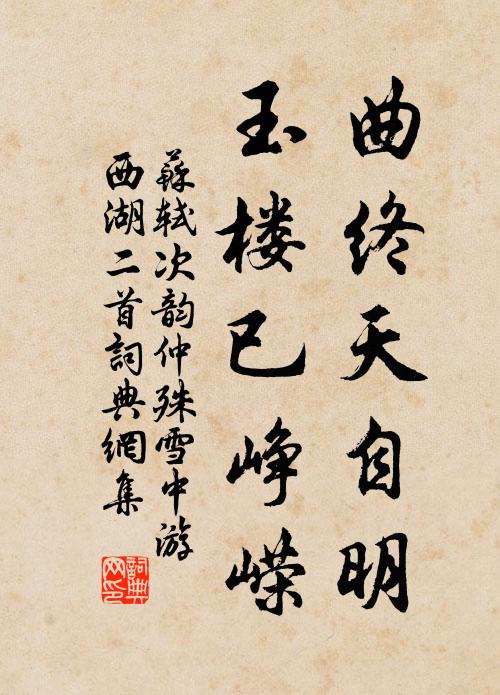 曲终天自明
玉楼已峥嵘
蘇軾次韵仲殊雪中游
西湖二首詞典網集
詞典
网印